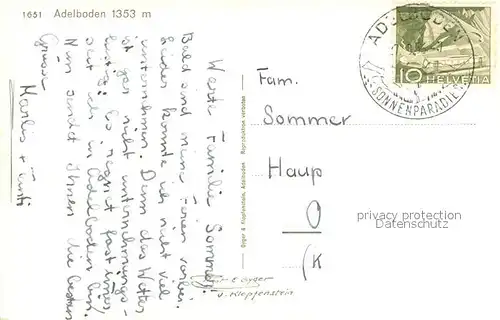 1651 Adelboden 1353 m
Werte Familie Sommer,
Bald sind meine Ferien vorbei.
Leider konnte ich nicht viel
unternehmen. Denn das Wetter
ist gar nicht unternehmungs-
lustig. Es regnet fast immer
seit ich in Adelboden bin.
Nun sendet Ihnen die besten
Grüsse
Marlis +
Gyger & Klopfenstein, Adelboden Reproduktion verboten
E. Gyger
Klopfenstein
ADELBODEN
SONNENPARADIES
10 HELVETIA
Fam.
Sommer
Haup
O
(K
privacy protection
Datenschutz